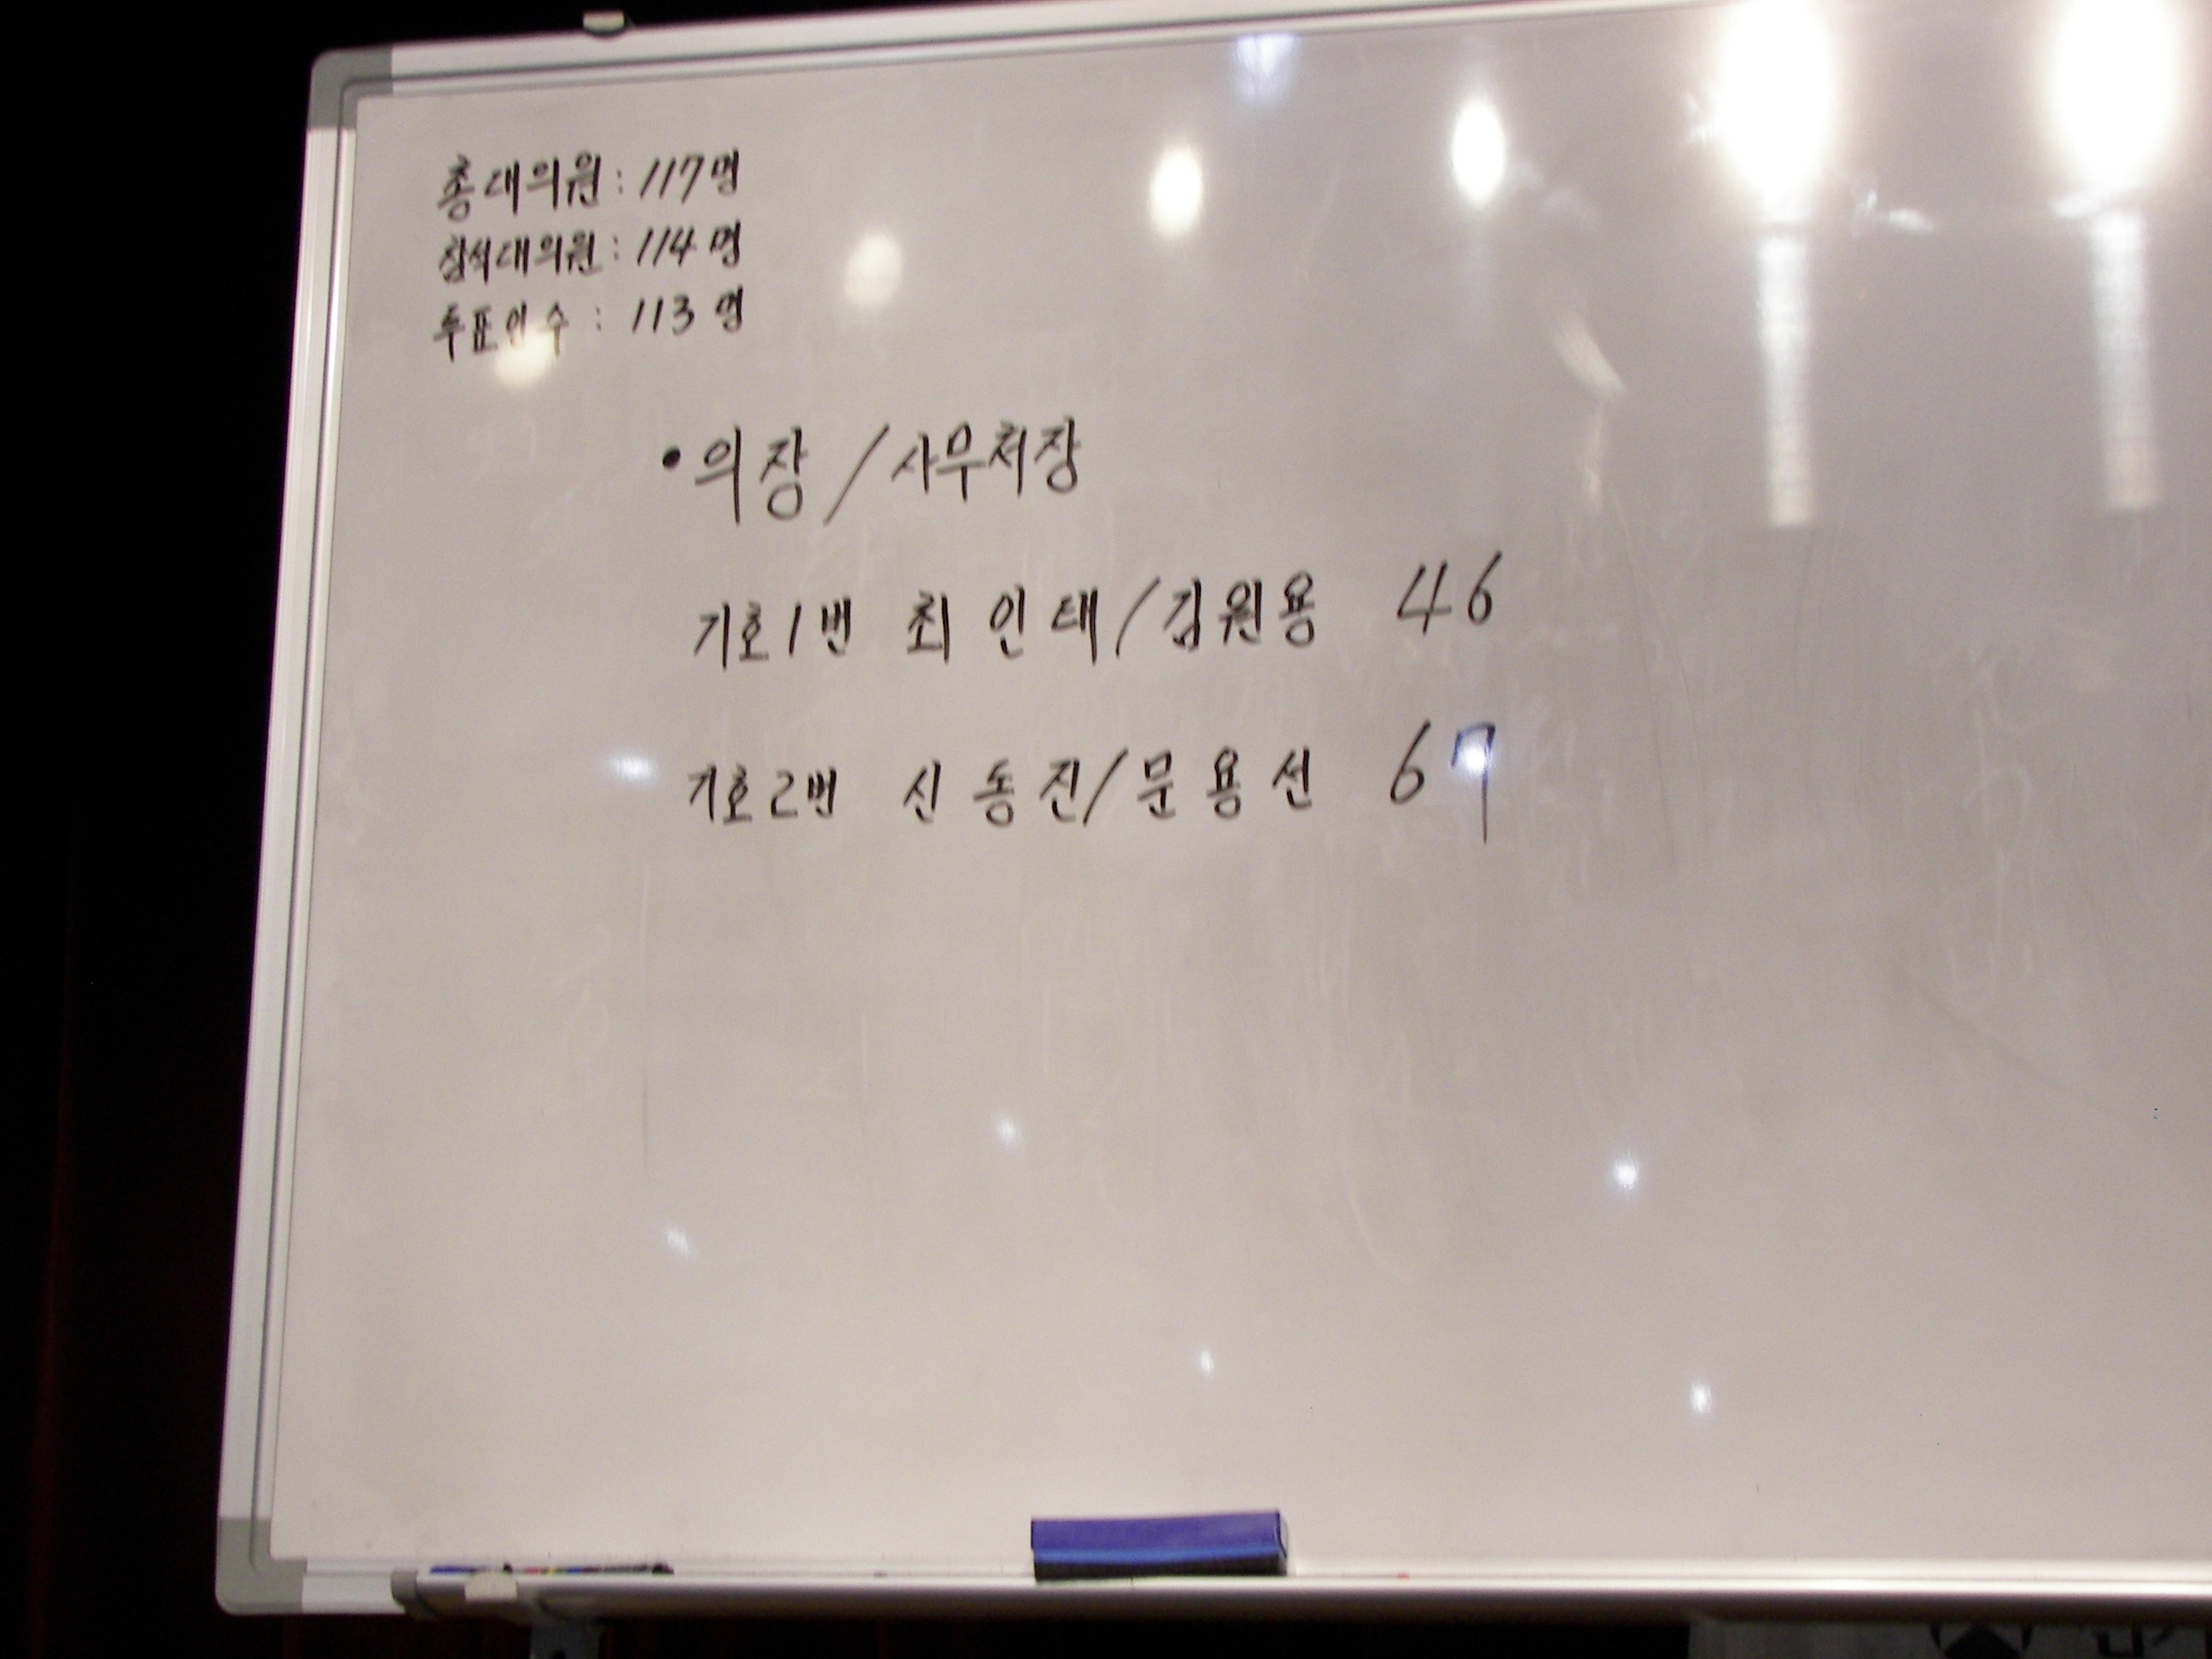 총대의원 : 117명
참석대의원 : 114명
투표인수 : 113명
• 의장 / 사무처장
기호1번 최인태/김원용 46
기호2번 신동진/문용선 67